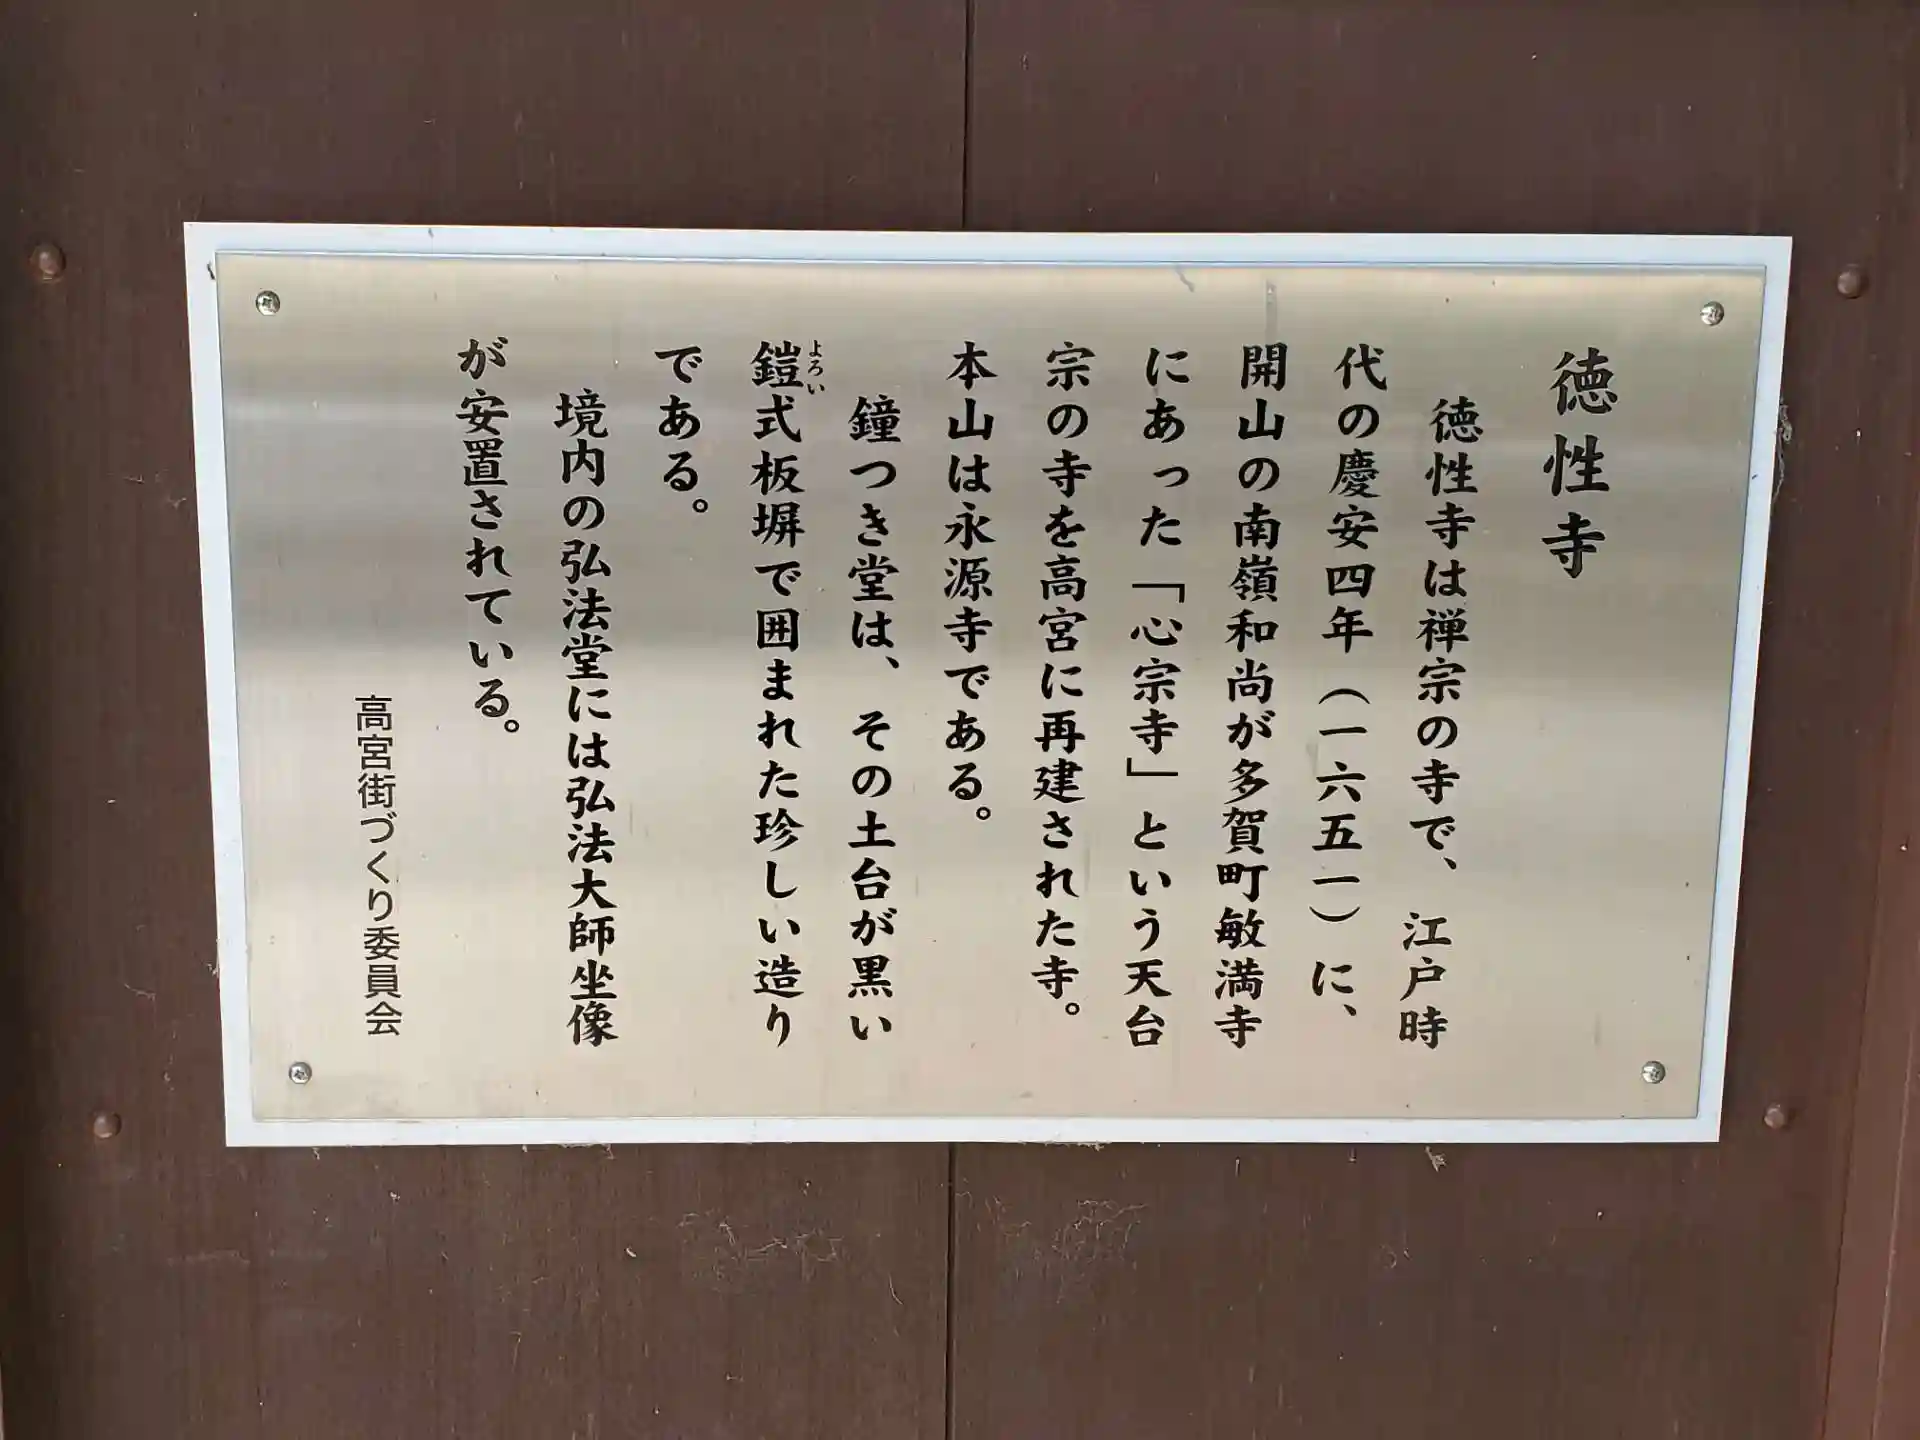 徳性寺
徳性寺は禅宗の寺で、江戸時
代の慶安四年（一六五一）に、
開山の南嶺和尚が多賀町敏満寺
にあった「心宗寺」という天台
宗の寺を高宮に再建された寺。
本山は永源寺である。
鐘つき堂は、その土台が黒い
よろい
鎧式板塀で囲まれた珍しい造り
である。
境内の弘法堂には弘法大師坐像
が安置されている。
高宮街づくり委員会